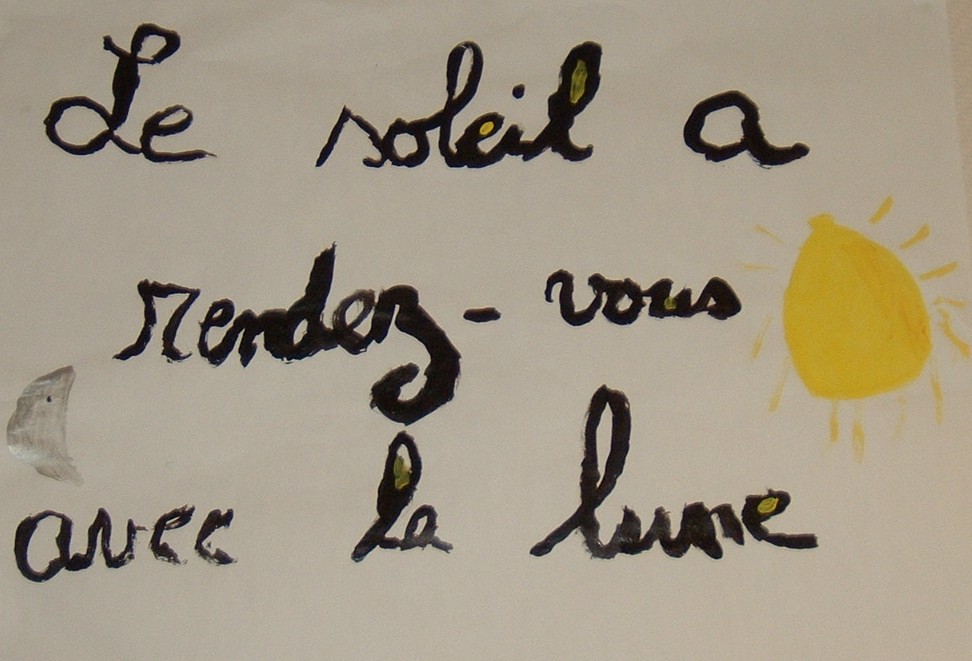 Le soleil a
rendez-vous
avec la lune